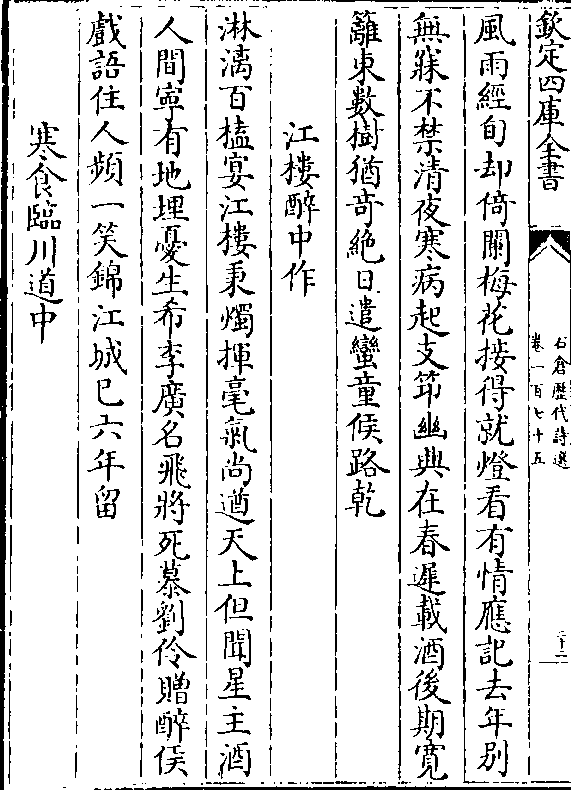 欽定四庫全書
石倉歷代詩選
卷一百七十五
三十二
風雨經旬却倚闌梅花接得就燈看有情應記去年別
無寐不禁清夜寒病起支笻幽興在春遲載酒後期寛
籬東數樹猶竒絶日遣蠻童候路乾
江樓醉中作
淋漓百榼宴江樓秉燭揮毫氣尚遒天上但聞星主酒
人間寜有地埋憂生希李廣名飛將死慕劉伶贈醉侯
戲語住人頻一笑錦江城已六年留
寒食臨川道中